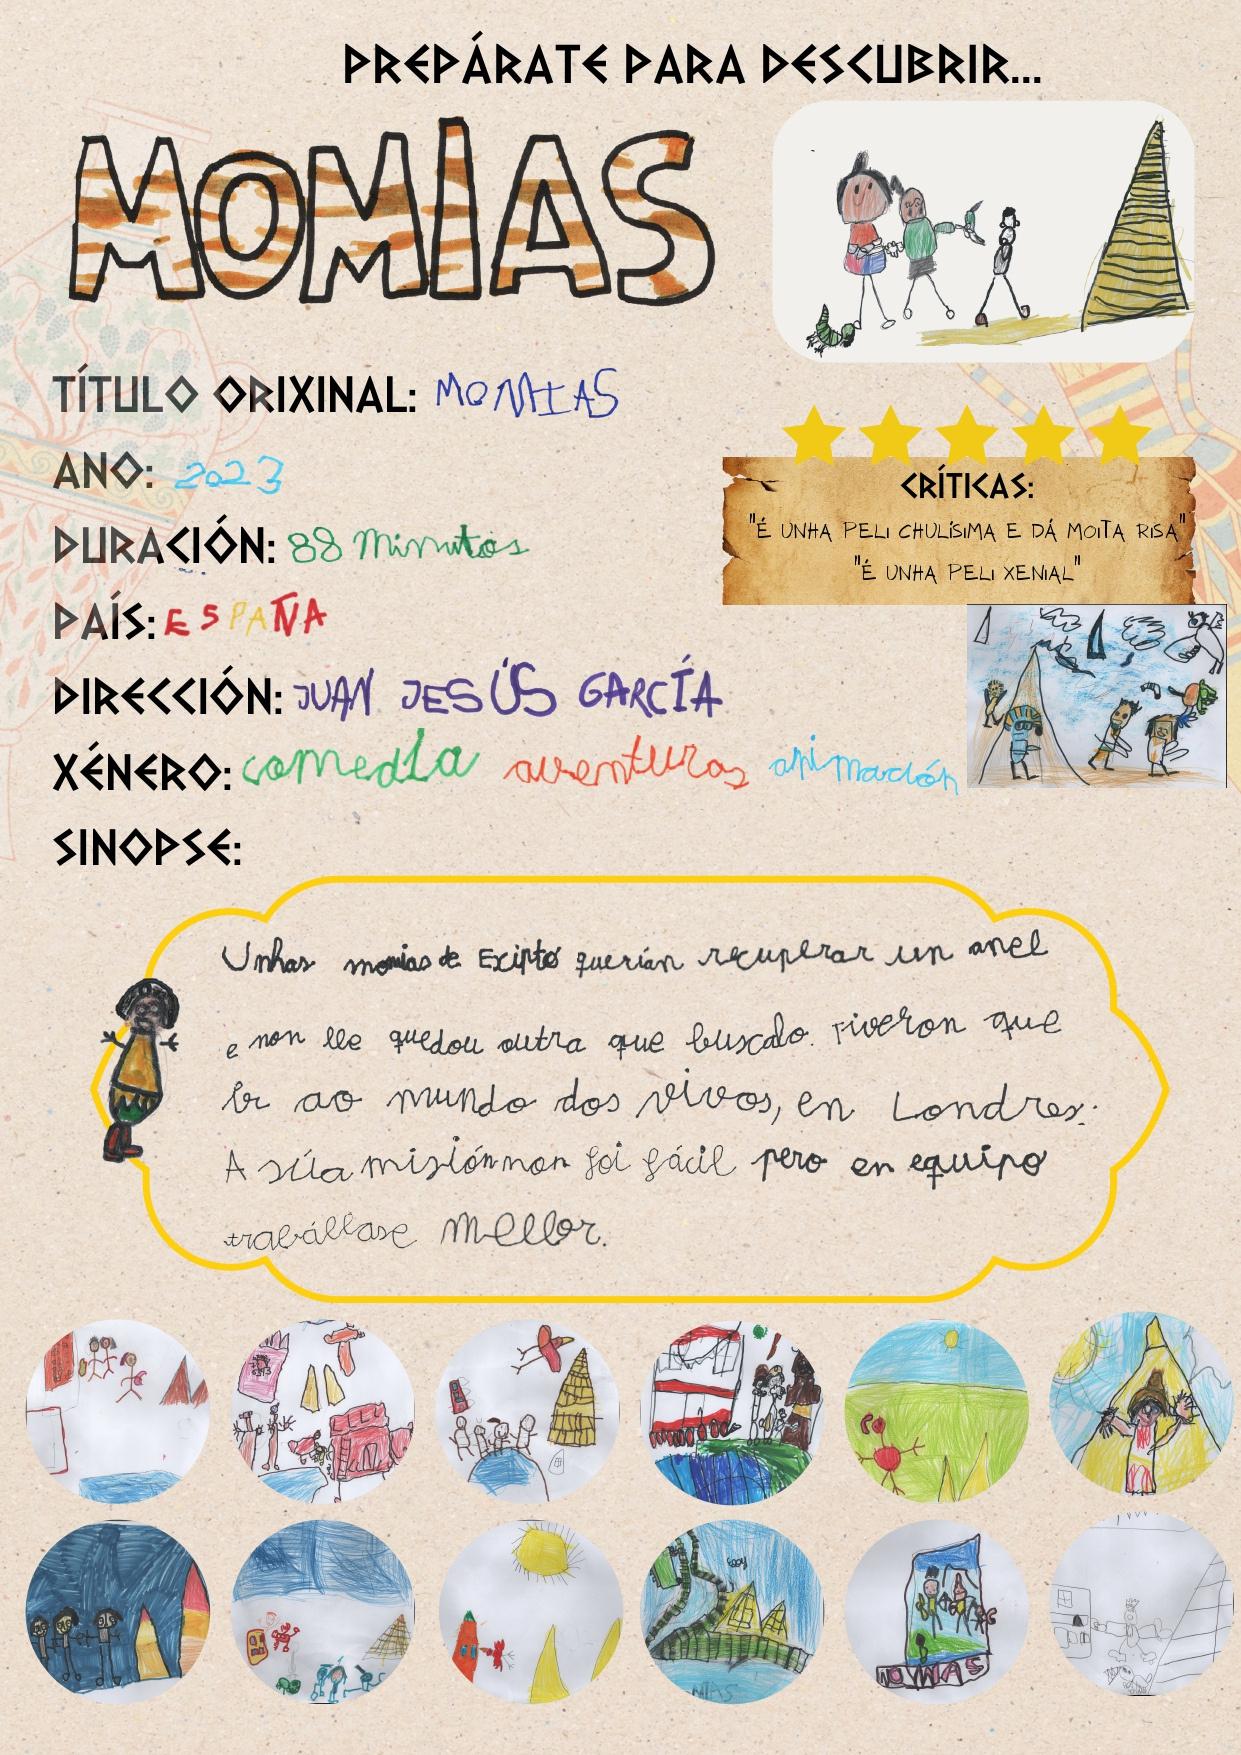 PREPÁRATE PARA DESCUBRIR...
MOMIAS
TÍTULO ORIXINAL: MOMIAS
ANO: 2023
DURACIÓN: 88 Minutos
PAÍS: ESPAÑA
DIRECCIÓN: JUAN JESÚS GARCÍA
XÉNERO: comedIa aventuras animación
CRÍTICAS:
"É UNHA PELI CHULÍSIMA E DÁ MOITA RISA"
"É UNHA PELI XENIAL"
SINOPSE:
Unhas momias de Exipto querían recuperar un anel
e non lle quedou outra que buscalo. Tiveron que
ir ao mundo dos vivos, en Londres.
A súa misión non foi fácil pero en equipo
trabállase mellor.
MOMIAS